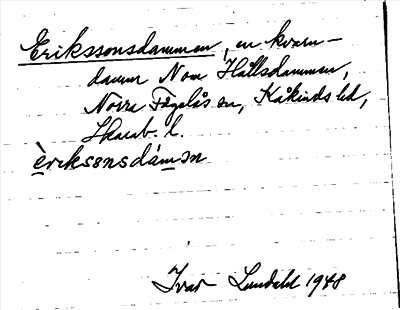 Erikssonsdammen, en kvarn-
damm Norr Hållsdammen,
Norra Fågelås sn, Kåkinds hd,
Skarab. l.
èrikssonsdámən
Ivar Lundahl 1948